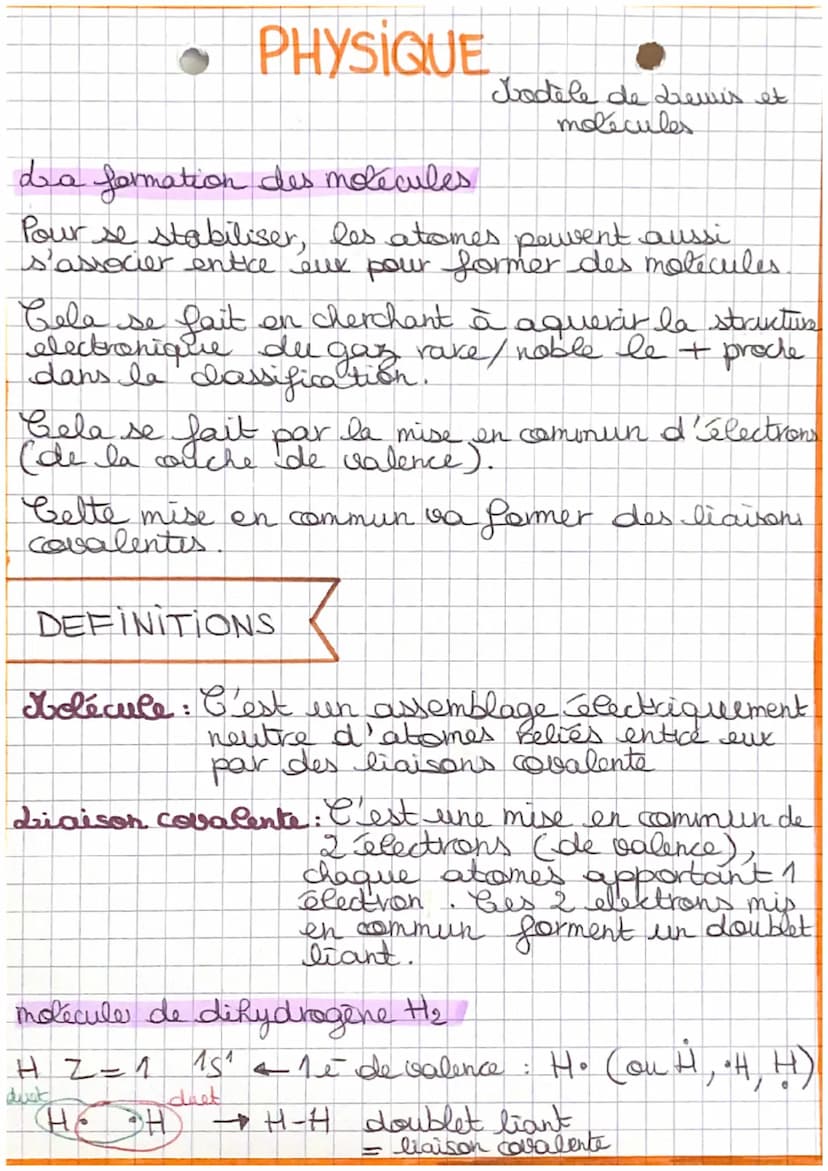 PHYSIQUE
Modèle de Lewis et
molécules
La formation des molécules
Pour se stabiliser, les atomes peuvent aussi
s'associer entre eux pour former des molécules.
Cela se fait en cherchant à aquerir la structure
electronique du gaz rare/noble le + proche
dans la classification.
Cela se fait par la mise en commun d'électrons
(de la couche de valence).
Cette mise en commun va former des liaisons
covalentes.
DEFINITIONS
Molécule : C'est un assemblage électriquement
neutre d'atomes reliés entre eux
par des liaisons covalente
Liaison covalente : C'est une mise en commun de
2 électrons (de valence),
chaque atomes apportant 1
électron. Ces 2 elektrons mis
en commun forment un doublet
liant.
molécules de dihydrogène H₂
H Z=1 1s¹ ← 1e⁻ de valence : H• (ou Ḣ, •H, Ḥ)
duet duet
H• •H → H-H doublet liant
= liaison covalente